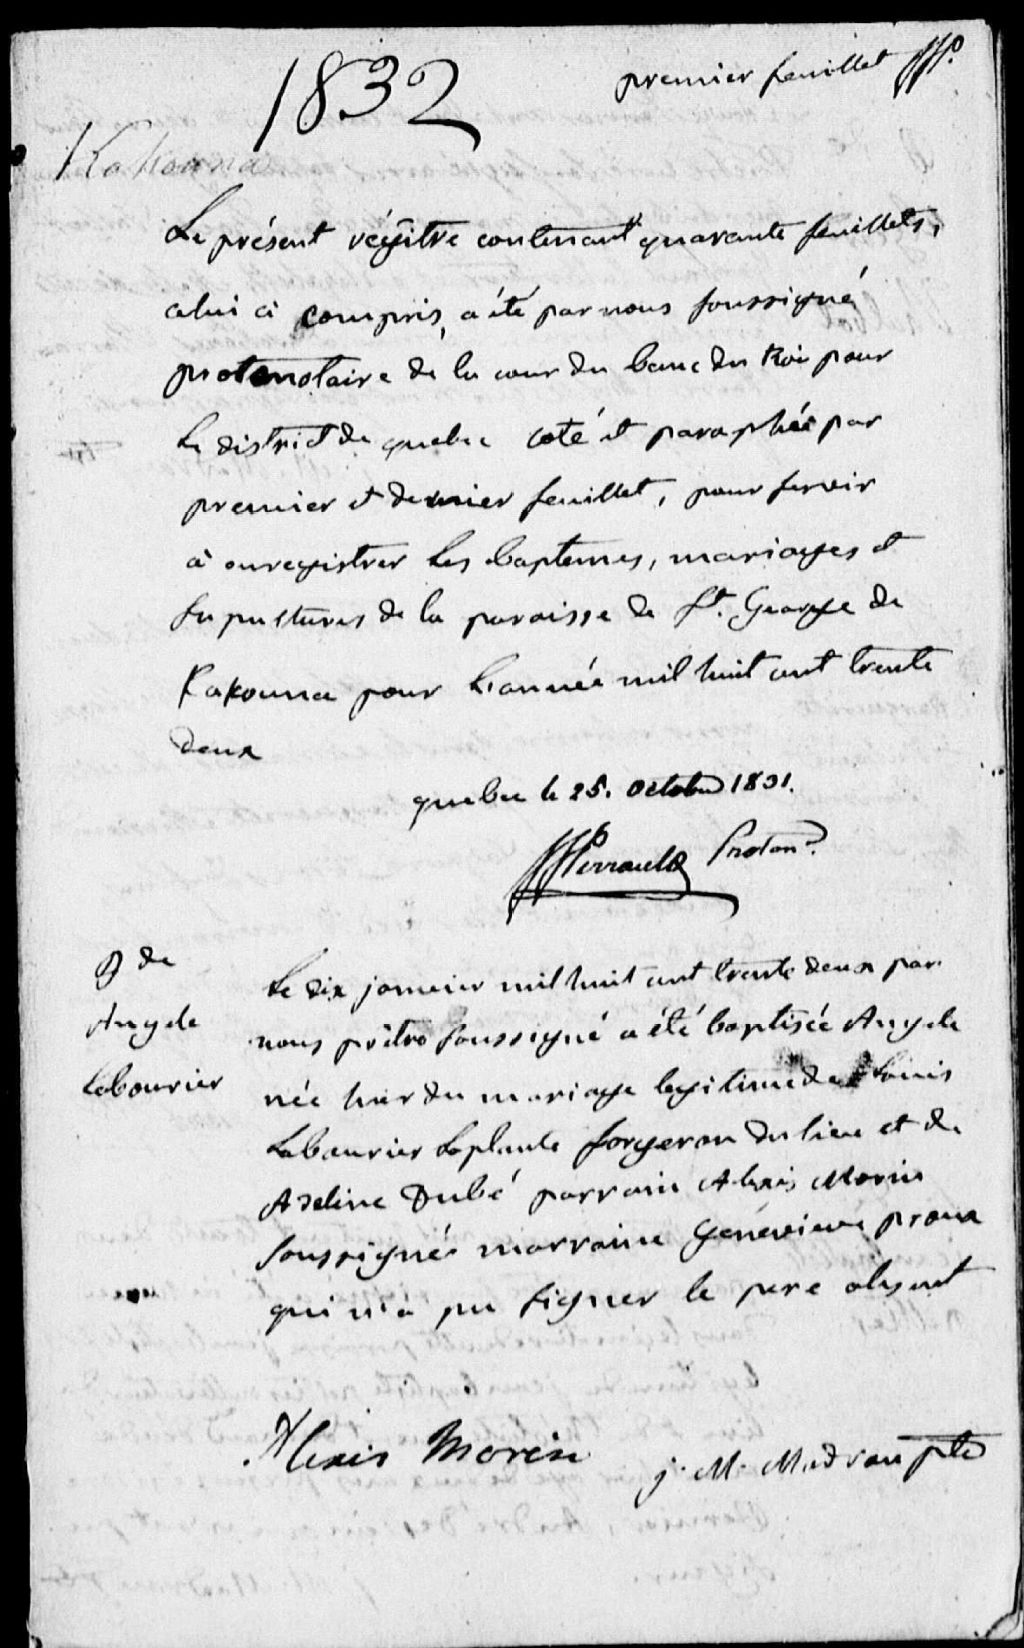 1832
premier feuillet JFP.
Kakouna
Le présent régître contenant quarante feuillets,
celui ci compris, a été par nous soussigné
protonotaire de la cour du banc du Roi pour
le district de quebec coté et paraphée par
premier et dernier feuillet, pour servir
à enregistrer les baptemes, mariages et
sepultures de la paroisse de St. George de
Kakouna pour l'année mil huit cent trente
deux
quebec le 25. octobre 1831.
JFPerrault Proton.
B de
Angele
Lebourier
Le dix janvier mil huit cent trente deux par
nous prêtre soussigné a été baptisée Angele
née hier du mariage legitime de Louis
Lebourier Laplante forgeron du lieu et de
Adeline Dubé parrain Alexis Morin
soussigné marraine Généviève proux
qui n'a pu signer le pere absent
Alexis Morin
j. M. Madran ptr